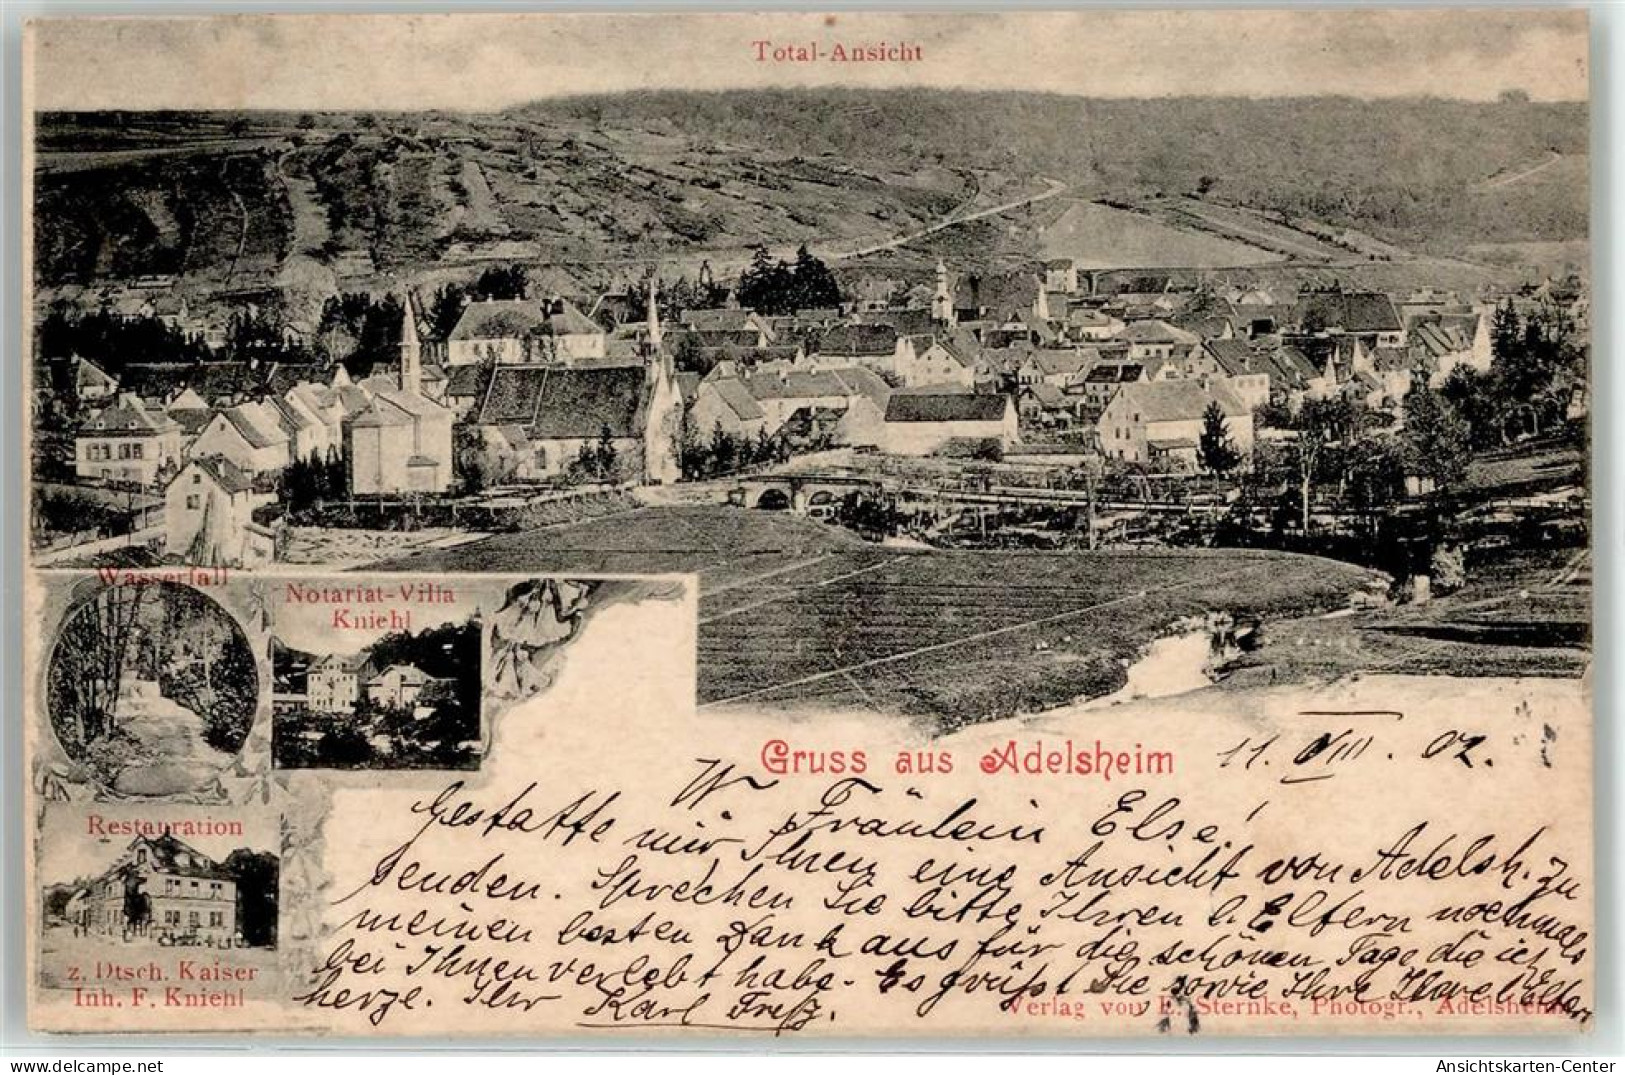 Total-Ansicht
Wasserfall
Notariat-Villa
Kniehl
Restauration
z. Dtsch. Kaiser
Inh. F. Kniehl
Gruss aus Adelsheim
11. VIII. 02.
W. Fräulein Else!
Gestatte mir, Ihnen eine Ansicht von Adelsh. zu
senden. Sprechen Sie bitte Ihren l. Eltern nochmals
meinen besten Dank aus für die schönen Tage die ich
bei Ihnen verlebt habe. Es grüßt Sie sowie Ihre l. Eltern
herzl. Ihr Karl
Verlag von E. Sternke, Photogr., Adelsheim
AnsichtsKarten-Center